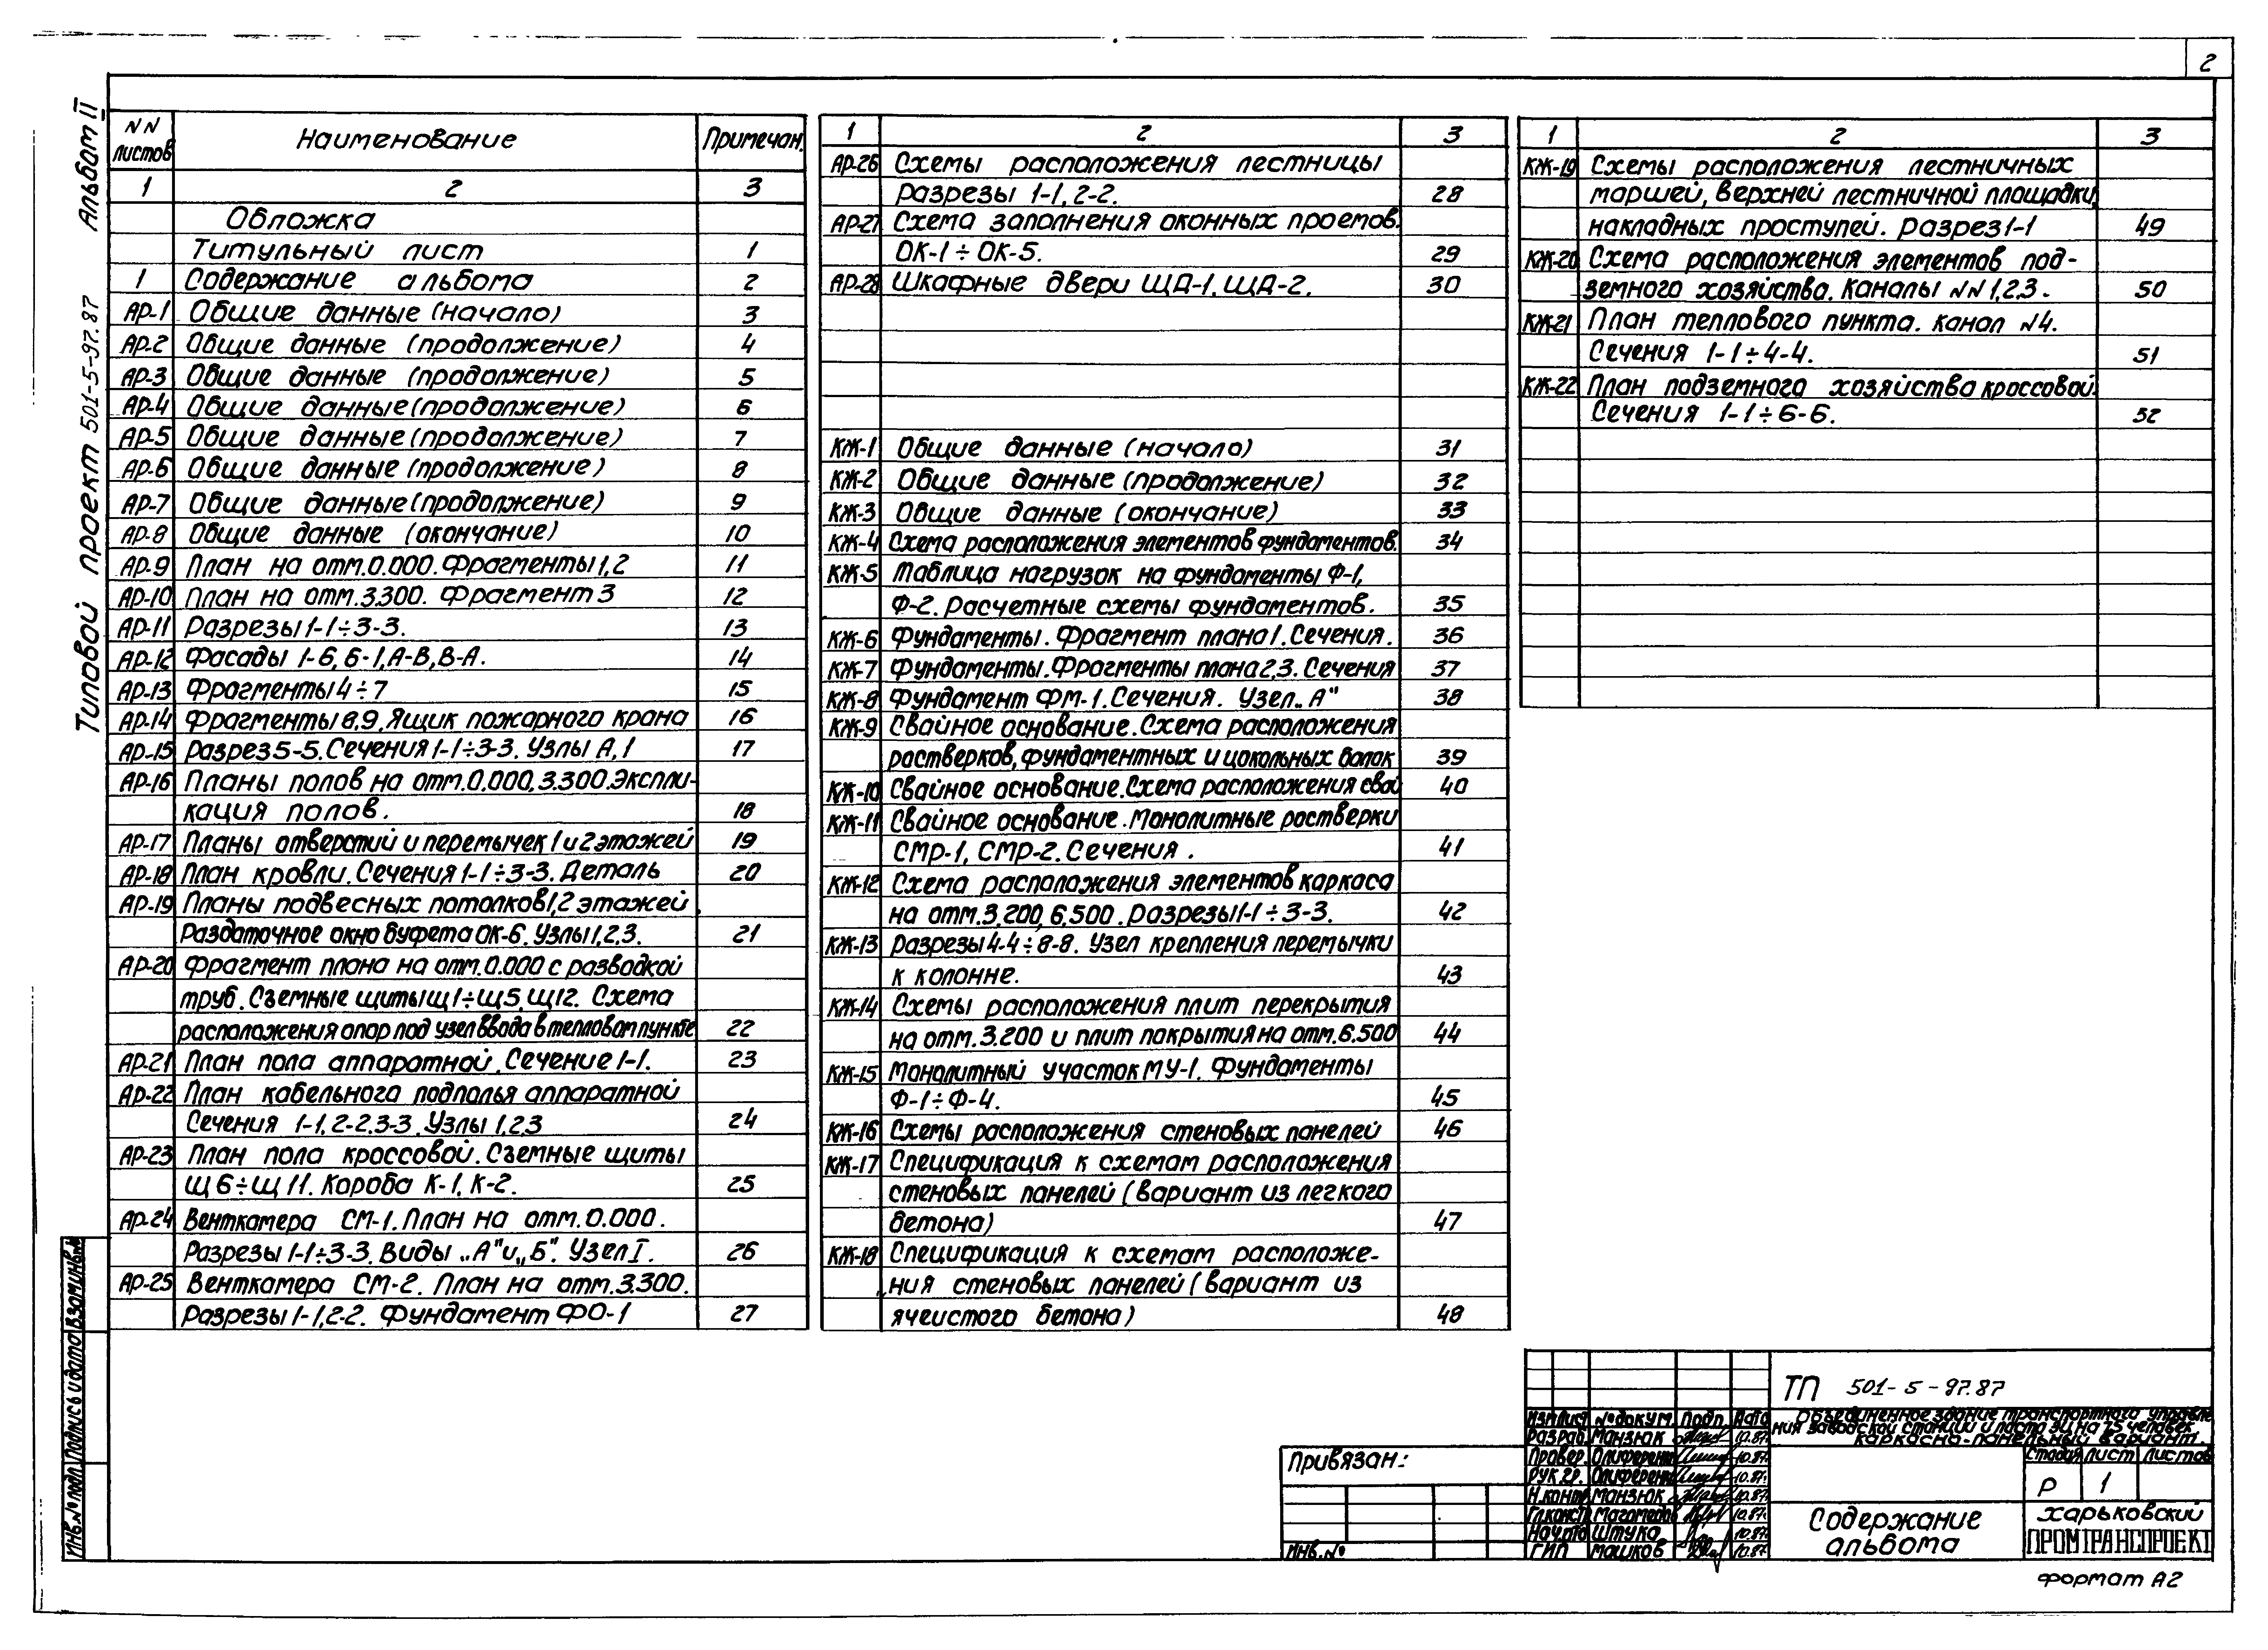 2
Альбом II
Типовой проект 501-5-97.87
NN листов Наименование Примечан.
1 2 3
Обложка
Титульный лист 1
1 Содержание альбома 2
АР-1 Общие данные (начало) 3
АР-2 Общие данные (продолжение) 4
АР-3 Общие данные (продолжение) 5
АР-4 Общие данные (продолжение) 6
АР-5 Общие данные (продолжение) 7
АР-6 Общие данные (продолжение) 8
АР-7 Общие данные (продолжение) 9
АР-8 Общие данные (окончание) 10
АР-9 План на отм.0.000. Фрагменты 1,2 11
АР-10 План на отм.3.300. Фрагмент 3 12
АР-11 Разрезы 1-1÷3-3. 13
АР-12 Фасады 1-6, 6-1, А-В, В-А. 14
АР-13 Фрагменты 4÷7 15
АР-14 Фрагменты 8,9, Ящик пожарного крана 16
АР-15 Разрез 5-5. Сечения 1-1÷3-3. Узлы А, 1 17
АР-16 Планы полов на отм.0.000, 3.300. Экспли-
кация полов. 18
АР-17 Планы отверстий и перемычек 1 и 2 этажей 19
АР-18 План кровли. Сечения 1-1÷3-3. Деталь 20
АР-19 Планы подвесных потолков 1,2 этажей.
Раздаточное окно буфета ОК-6. Узлы 1,2,3. 21
АР-20 Фрагмент плана на отм.0.000 с разводкой
труб. Съемные щиты Щ1÷Щ5, Щ12. Схема
расположения опор под узел ввода в тепловом пункте 22
АР-21 План пола аппаратной. Сечение 1-1. 23
АР-22 План кабельного подполья аппаратной
Сечения 1-1, 2-2, 3-3. Узлы 1,2,3 24
АР-23 План пола кроссовой. Съемные щиты
Щ6÷Щ11. Короба К-1, К-2. 25
АР-24 Венткамера СМ-1. План на отм.0.000.
Разрезы 1-1÷3-3. Виды „А" и „Б". Узел I. 26
АР-25 Венткамера СМ-2. План на отм.3.300.
Разрезы 1-1, 2-2. Фундамент ФО-1 27
1 2 3
АР-26 Схемы расположения лестницы
Разрезы 1-1, 2-2. 28
АР-27 Схема заполнения оконных проемов.
ОК-1÷ОК-5. 29
АР-28 Шкафные двери ЩД-1, ЩД-2. 30
КЖ-1 Общие данные (начало) 31
КЖ-2 Общие данные (продолжение) 32
КЖ-3 Общие данные (окончание) 33
КЖ-4 Схема расположения элементов фундаментов. 34
КЖ-5 Таблица нагрузок на фундаменты Ф-1,
Ф-2. Расчетные схемы фундаментов. 35
КЖ-6 Фундаменты. Фрагмент плана 1. Сечения. 36
КЖ-7 Фундаменты. Фрагменты плана 2,3. Сечения 37
КЖ-8 Фундамент ФМ-1. Сечения. Узел „А" 38
КЖ-9 Свайное основание. Схема расположения
ростверков, фундаментных и цокольных балок 39
КЖ-10 Свайное основание. Схема расположения свай 40
КЖ-11 Свайное основание. Монолитные ростверки
СМР-1, СМР-2. Сечения. 41
КЖ-12 Схема расположения элементов каркаса
на отм.3.200, 6.500. Разрезы 1-1÷3-3. 42
КЖ-13 Разрезы 4-4÷8-8. Узел крепления перемычки
к колонне. 43
КЖ-14 Схемы расположения плит перекрытия
на отм.3.200 и плит покрытия на отм.6.500 44
КЖ-15 Монолитный участок МУ-1. Фундаменты
Ф-1÷Ф-4. 45
КЖ-16 Схемы расположения стеновых панелей 46
КЖ-17 Спецификация к схемам расположения
стеновых панелей (вариант из легкого
бетона) 47
КЖ-18 Спецификация к схемам расположе-
ния стеновых панелей (вариант из
ячеистого бетона) 48
1 2 3
КЖ-19 Схемы расположения лестничных
маршей, верхней лестничной площадки,
накладных проступей. Разрез 1-1 49
КЖ-20 Схема расположения элементов под-
земного хозяйства. Каналы NN 1,2,3. 50
КЖ-21 План теплового пункта. Канал N4.
Сечения 1-1÷4-4. 51
КЖ-22 План подземного хозяйства кроссовой.
Сечения 1-1÷6-6. 52
Инв.№ подл. Подпись и дата Взам.инв.№
Привязан:
Инв.№
ТП 501-5-97.87
Объединенное здание транспортного управле
ния заводской станции и поста ЭЦ на 75 человек
каркасно-панельный вариант.
Изм Лист № докум. Подп. Дата
Разраб. Манзюк 10.87г.
Провер. Олиференко 10.87г.
Рук.гр. Олиференко 10.87г.
Н.контр Манзюк 10.87г.
Гл.конст. Магомедов 10.87г.
Нач.отд Штука 10.87г.
ГИП Машков 10.87г.
Стадия Лист Листов
Р 1
Содержание
альбома
Харьковский
ПРОМТРАНСПРОЕКТ
Формат А2